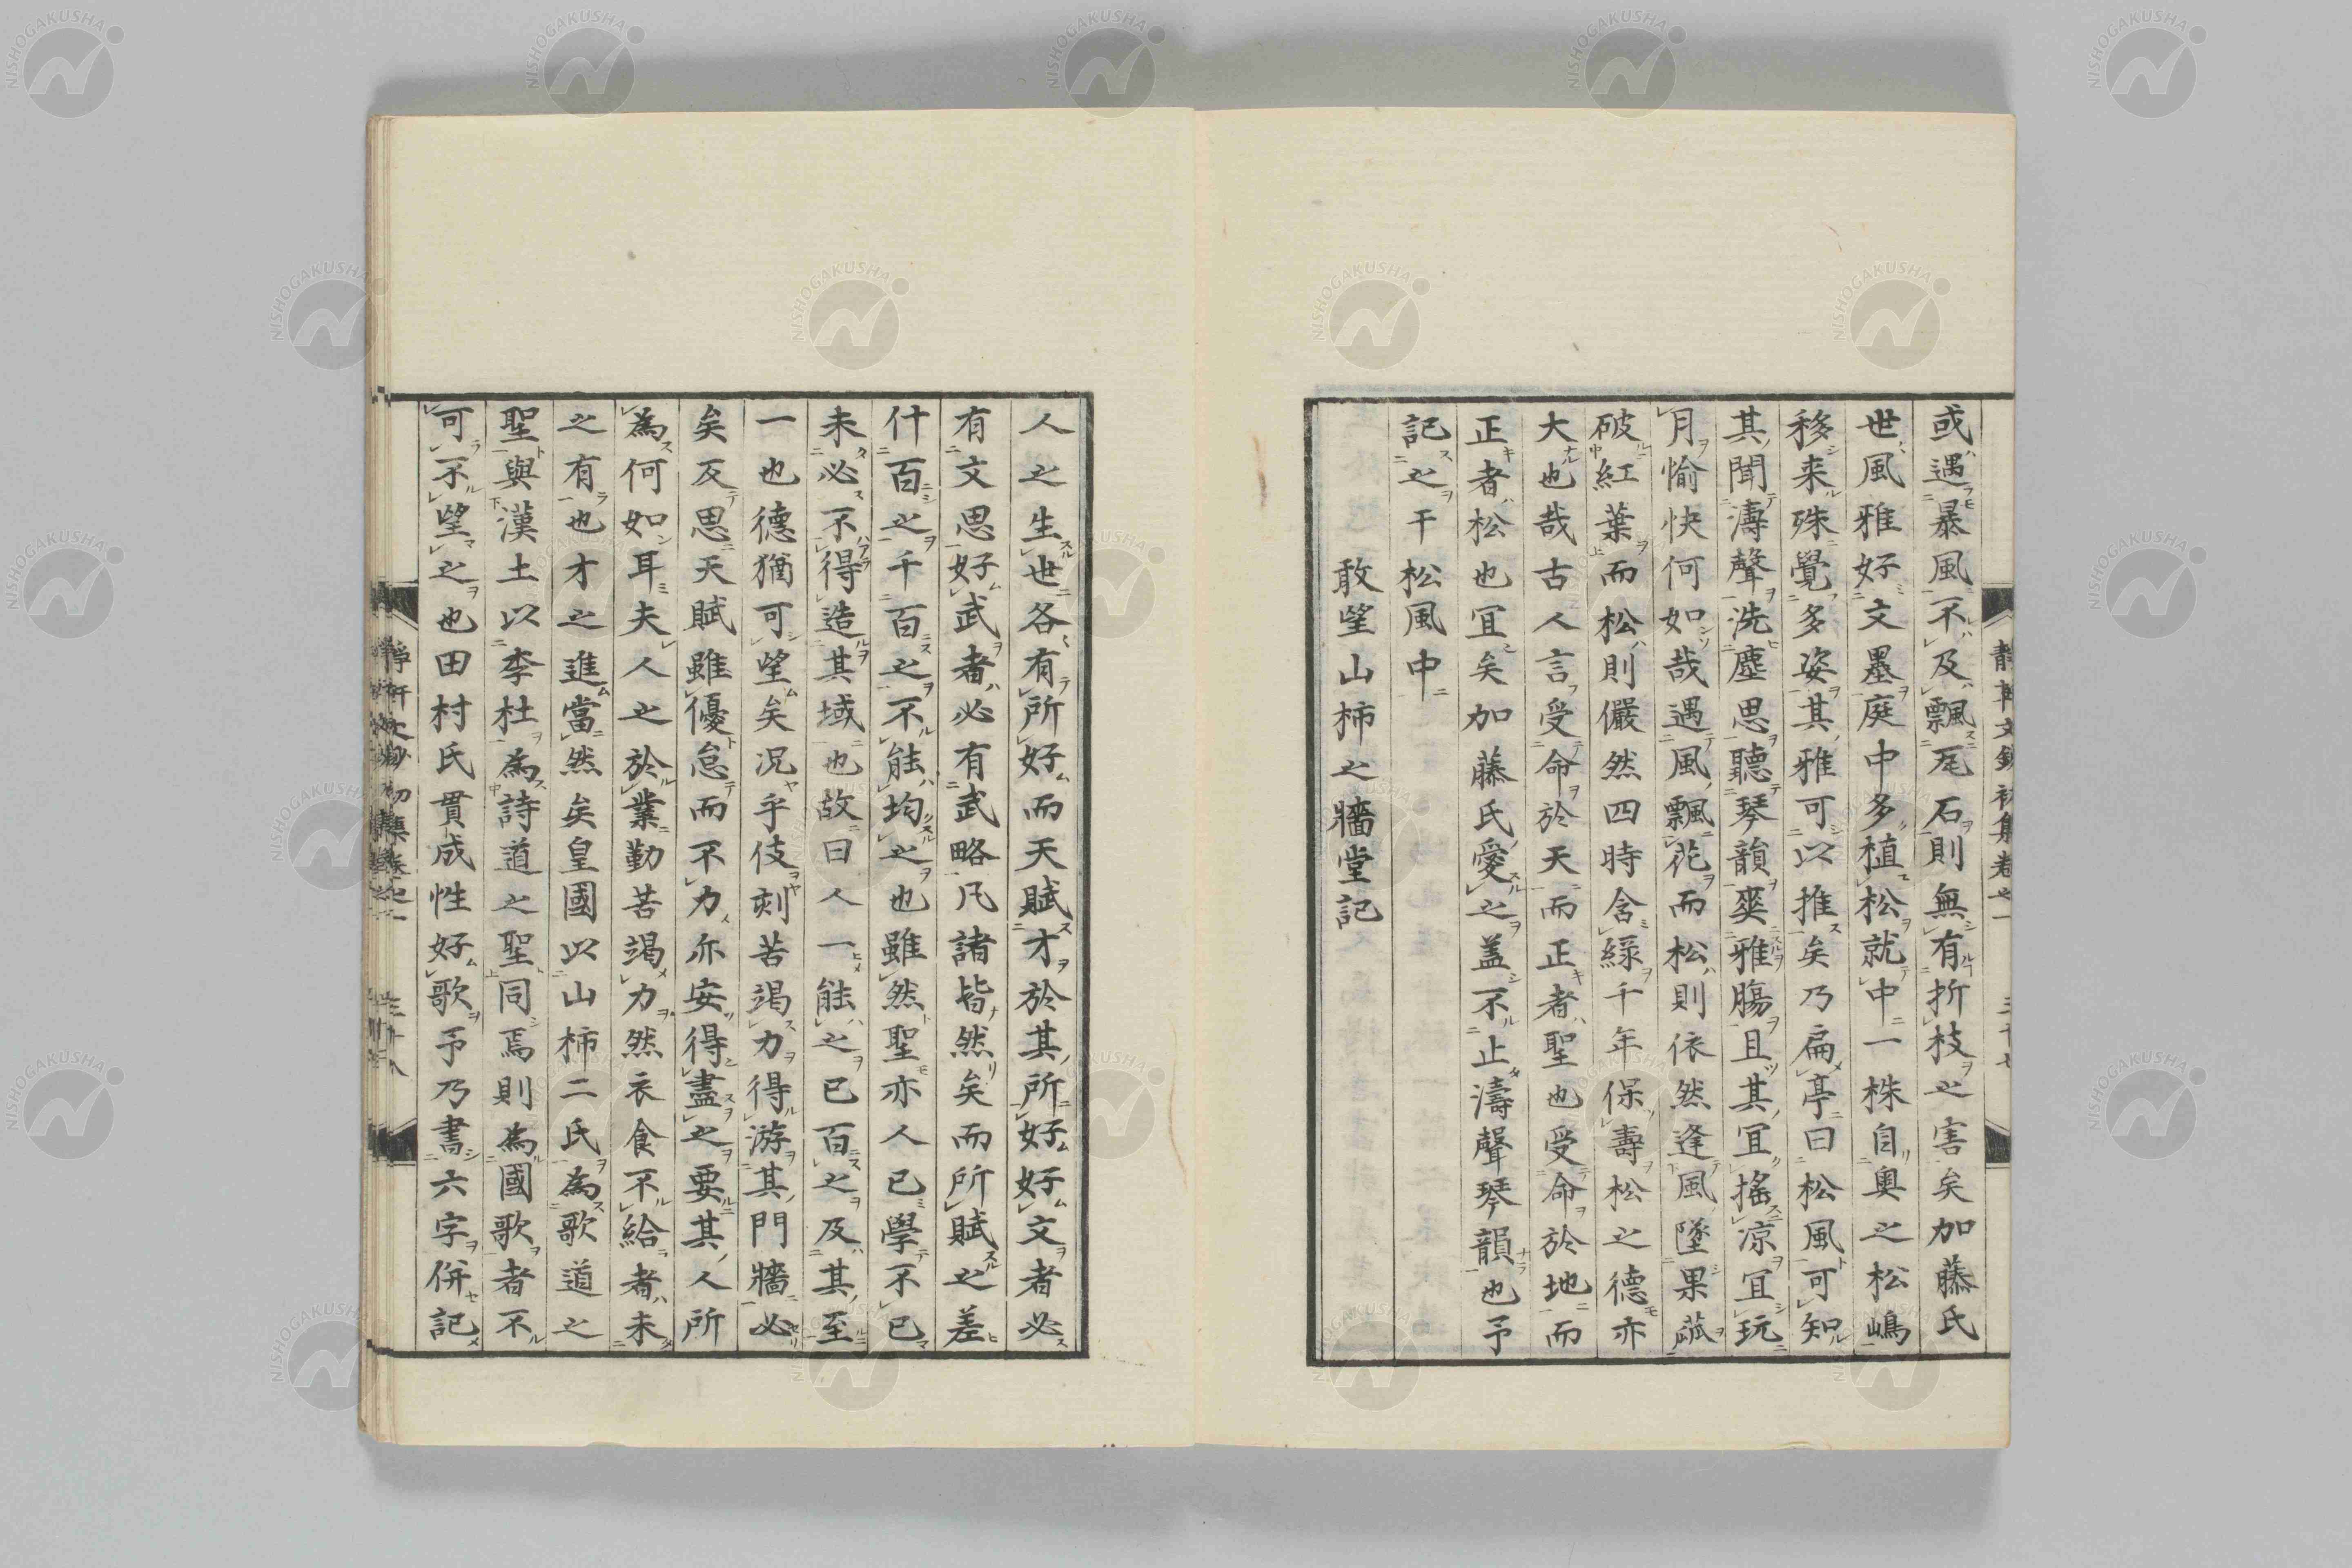 或遇暴風不及飄瓦石則無有折枝之害矣加藤氏
世風雅好文墨庭中多植松就中一株自奥之松嶋
移来殊覺多姿其雅可以推矣乃扁亭曰松風可知
其聞濤聲洗塵思聽琴韻爽雅腸且其宜搖凉宜玩
月愉快何如哉遇風飄花而松則依然逢風墜果蓏
破紅葉而松則儼然四時含緑千年保壽松之德亦
大也哉古人言受命於天而正者聖也受命於地而
正者松也宜矣加藤氏愛之盖不止濤聲琴韻也予
記之于松風中
敢望山柿之牆堂記
人之生世各有所好而天賦才於其所好好文者必
有文思好武者必有武略凡諸皆然矣而所賦之差
什百之千百之不能均之也雖然聖亦人已學不已
未必不得造其域也故曰人一能之已百之及其至
一也德猶可望矣况乎伎刻苦竭力得游其門牆必
矣反思天賦雖優怠而不力亦安得盡之要其人所
為何如耳夫人之於業勤苦竭力然衣食不給者未
之有也才之進當然矣皇國以山柿二氏為歌道之
聖與漢土以李杜為詩道之聖同焉則為國歌者不
可不望之也田村氏貫成性好歌予乃書六字併記